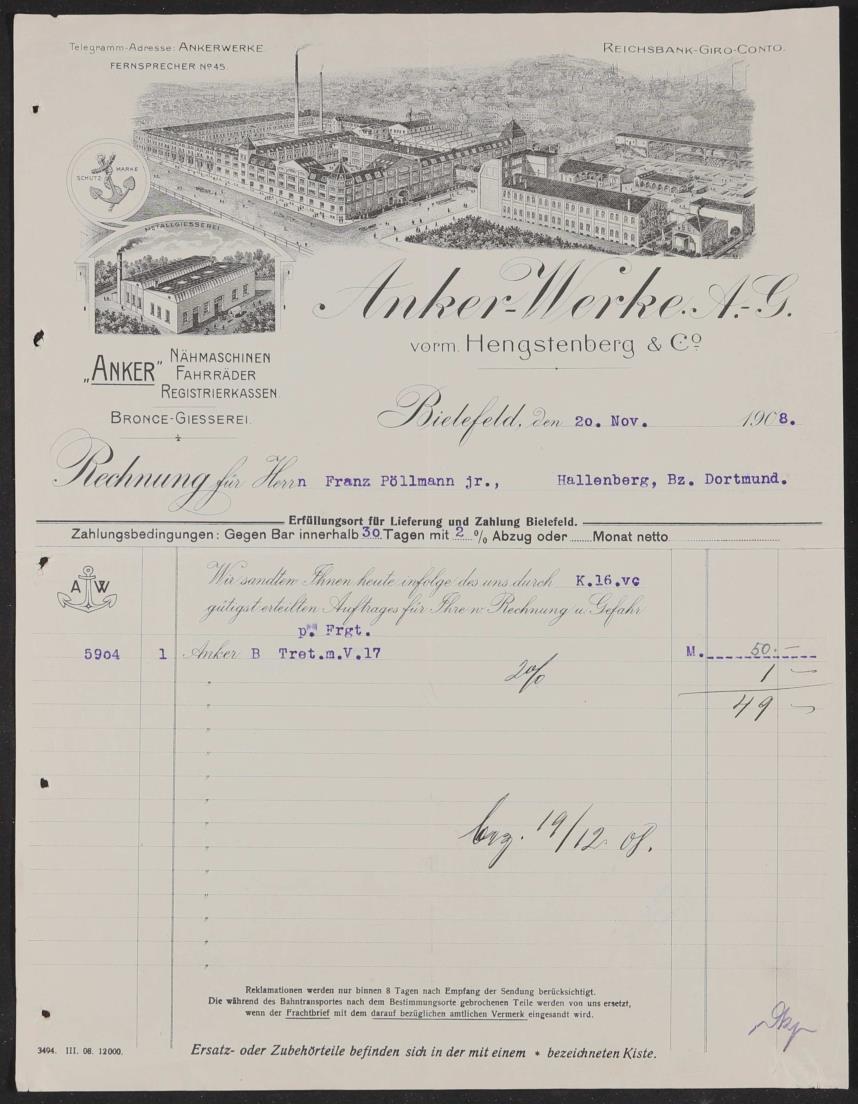 Telegramm-Adresse: ANKERWERKE.
FERNSPRECHER No 45.
REICHSBANK-GIRO-CONTO.
SCHUTZ MARKE
METALLGIESSEREI
Anker-Werke. A.-G.
vorm. Hengstenberg & Co
„ANKER“ NÄHMASCHINEN
FAHRRÄDER
REGISTRIERKASSEN.
BRONCE-GIESSEREI.
Bielefeld, den 20. Nov. 1908.
Rechnung für Herrn Franz Pöllmann jr., Hallenberg, Bz. Dortmund.
Erfüllungsort für Lieferung und Zahlung Bielefeld.
Zahlungsbedingungen: Gegen Bar innerhalb 30 Tagen mit 2 % Abzug oder ...... Monat netto
A W
Wir sandten Ihnen heute infolge des uns durch K.16.vc
gütigst erteilten Auftrages für Ihre n Rechnung u. Gefahr
p. Frgt.
5904 1 Anker B Tret.m.V.17 M. 50.—
2% 1 —
49 —
19/12 08.
Reklamationen werden nur binnen 8 Tagen nach Empfang der Sendung berücksichtigt.
Die während des Bahntransportes nach dem Bestimmungsorte gebrochenen Teile werden von uns ersetzt,
wenn der Frachtbrief mit dem darauf bezüglichen amtlichen Vermerk eingesandt wird.
3494. III. 08. 12000.
Ersatz- oder Zubehörteile befinden sich in der mit einem * bezeichneten Kiste.